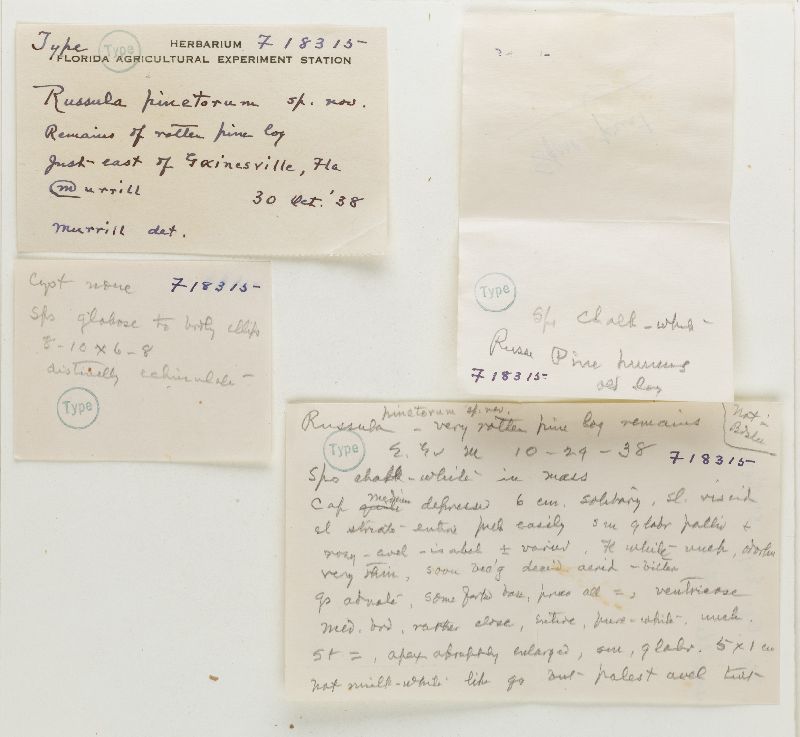 Type Type HERBARIUM F 18315
FLORIDA AGRICULTURAL EXPERIMENT STATION
Russula pinetorum sp. nov.
Remains of rotten pine log
Just east of Gainesville, Fla
Murrill 30 Oct. '38
Murrill det.
Cyst none F 18315
Sps globose to brdly ellips
8-10 x 6-8
distinctly echinulate
Type
Type
Sps chalk-white
Russ Pine humus
F 18315 old log
pinetorum sp. nov.
Russula - very rotten pine log remains
Not in
Type E. Gv M 10-29-38 F 18315
Sps chalk-white in mass
Cap medium depressed 6 cm. solitary, sl. viscid
sl striate entire peels easily sm glabr pallid ±
rosy-avel-isabel ± varied. Fl white unch, odorless
very thin, soon decid acrid - bitter
gs adnate, some forked base, inner all =, ventricose
med. brd, rather close, entire, pure-white, unch.
St =, apex abruptly enlarged, sm, glabr. 5 x 1 cm
not milk-white like gs but palest avel tint